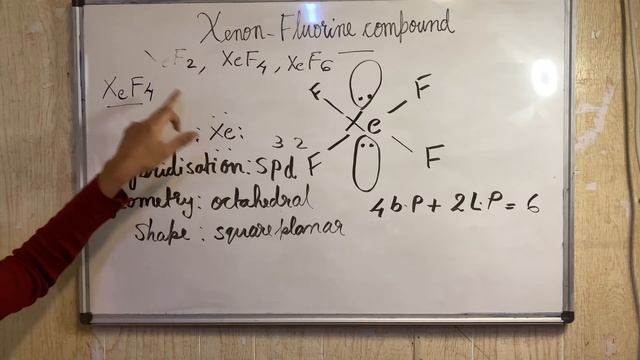 Xenon-Fluorine compound
XeF2, XeF4, XeF6
XeF4
: Xe:
Hybridisation: sp3d2
ometry: octahedral
Shape: square planar
F F
Xe
F F
4 b.P + 2 L.P = 6